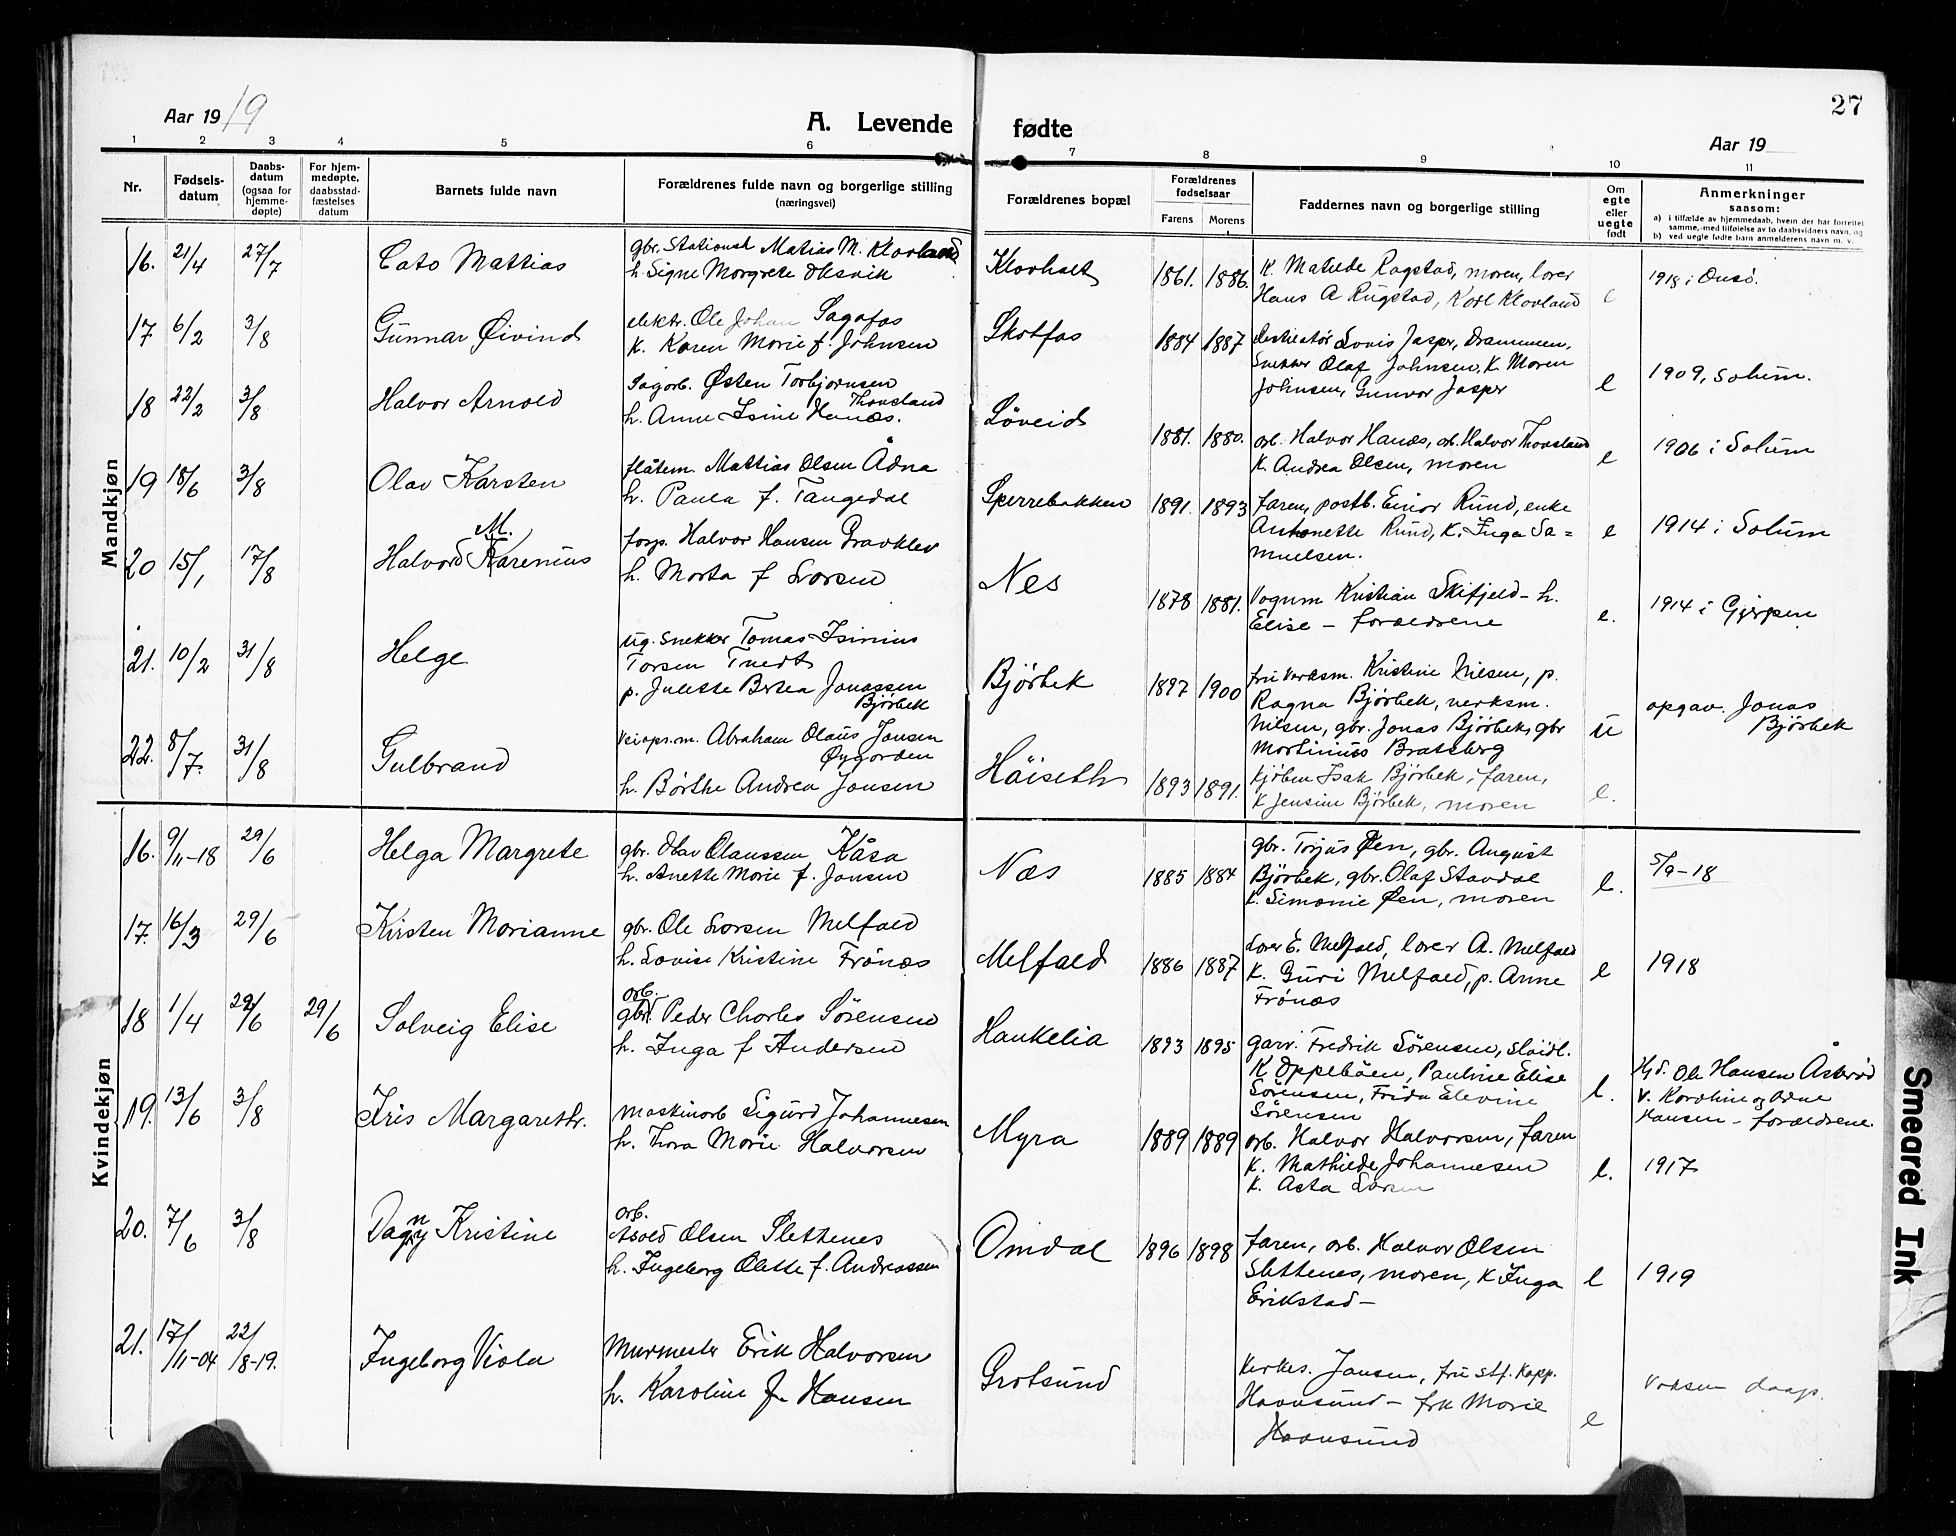 27
Aar 1919
A. Levende fødte
Aar 19
1 2 3 4 5 6 7 8 9 10 11
Nr.
Fødsels-
datum
Daabs-
datum
(ogsaa for
hjemme-
døpte)
For hjem-
medøpte,
daabsstad-
fæstelses
datum
Barnets fulde navn
Forældrenes fulde navn og borgerlige stilling
(næringsvei)
Forældrenes bopæl
Forældrenes
fødselsaar
Farens Morens
Faddernes navn og borgerlige stilling
Om
egte
eller
uegte
født
Anmerkninger
saasom:
a) i tilfælde av hjemmedaab, hvem der har forrettet
samme, med tilføielse av to daabsvidners navn, og
b) ved uegte fødte barn anmelderens navn m. v.
Mandkjøn
16. 21/4 27/7 Cato Mattias
gbr. Stationsk Matias M. Klovland
h. Signe Morgrete Olsvik
Klovholt 1861. 1886.
K. Matilde Rogstad, moren, lærer
Hans A Rugstad, Karl Klovland
e
1918 i Onsö.
17 6/2 3/8 Gunnar Øivind
elektr. Ole Johan Sagafos
K. Karen Marie f. Johnsen
Skotfos 1884 1887
Lovis Jasper, Drammen,
Snekker Olaf Johnsen, K. Maren
Johnsen, Gunvor Jasper
e
1909, Solum.
18 22/2 3/8 Halvor Arnold
Sagarb. Østen Torbjørnsen
Thovsland
h. Anne Isine Hanæs.
Löveid 1881. 1880.
arb. Halvor Hanæs, arb. Halvor Thovsland
K. Andrea Olsen, moren
e
1906 i Solum
19 18/6 3/8 Olav Karsten
flåtem. Mattias Olsen Ådna
h. Paula f. Tangedal
Sperrebakken 1891. 1893
Faren, postb. Einar Rund, enke
Antonette Rund, K. Inga Sa=
muelsen.
e
1914 i Solum
20 15/1 17/8 Halvard M. Karenius
forp. Halvor Hansen Gravklev
h. Marta f Larsen
Nes 1878 1881.
Vognm Kristian Skifjeld - h.
Elise - forældrene
e.
1914 i Gjerpen
21. 10/2 31/8 Helge
ug. snekker Tomas Isinius
Torsen Tvedt
p. Julette Bertea Jonassen
Bjørbek
Bjørbek 1897 1900
fru verksm. Kristine Nilsen, p.
Ragna Bjørbek, verksm.
Nilsen, gbr. Jonas Bjørbek, gbr
Martinius Bratsberg
u
opgav. Jonas
Bjørbek
22. 8/7. 31/8 Gulbrand
Veiops.m. Abraham Olaus Jansen
Øygarden
h. Børthe Andrea Jonsen
Håiseth 1893 1891.
Kjøbm Isak Bjørbek, faren,
K Jensine Bjørbek, moren
e.
Kvindekjøn
16. 9/11-18 29/6 Helga Margrete
gbr. Olav Olaussen Kåsa
h. Anette Marie f. Jansen
Næs 1885 1884
gbr. Torjus Øen, gbr. August
Bjørbek, gbr. Olaf Stavdal
K. Simonie Øen, moren
e.
5/9-18
17. 16/3 29/6 Kirsten Marianne
gbr. Ole Larsen Melfald
h. Lovise Kristine Frönæs
Melfald 1886 1887
Lærer E. Melfald, lærer A. Melfald
K. Guri Melfald, p. Anne
Frönæs
e
1918
18 1/4 29/6 29/6 Solveig Elise
arb.
gbr. Peder Charles Sörensen
h. Inga f Andersen
Haukelia 1893 1895
garv. Fredrik Sörensen, sløidl.
K Oppebøen, Pauline Elise
Sörensen, Frida Elevine
Sörensen
e.
Hjd. Ole Hansen Åsterød
v. Karoline og Adne
Hansen - forældrene.
19. 13/6 3/8 Iris Margarethe.
Maskinarb Sigurd Johannesen
h. Thora Marie Halvorsen
Myra 1889 1889
arb. Halvor Halvorsen, faren
K. Mathilde Johannesen
K. Asta Larsen
e.
1917
20. 7/6 3/8 Dagny Kristine
arb.
Asold Olsen Slettenes
h. Ingeborg Olette f. Andreassen
Omdal 1896 1898
faren, arb. Halvor Olsen
Slettenes, moren, K Inga
Erikstad -
e
1919
21. 17/11-04 22/8-19. Ingeborg Viola
Murmester Erik Halvorsen
h. Karoline f. Hansen
Grotsund
Kirkes. Jansen, fru stf. Kapp.
Havnsund - frk Marie
Havnsund
e
Voksen daap.
Smeared Ink